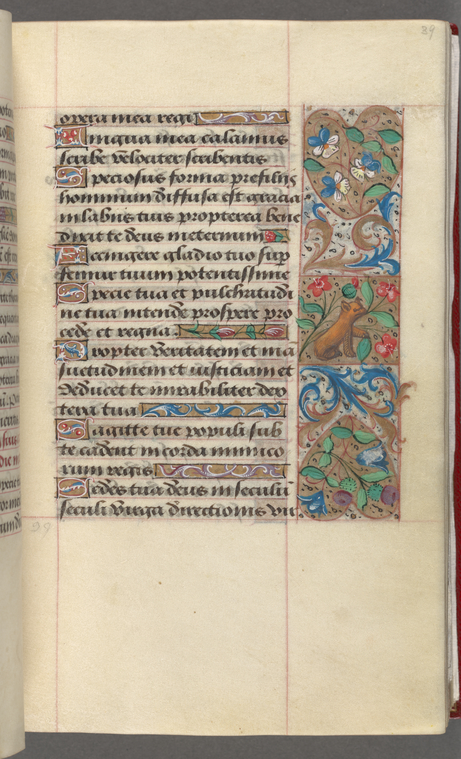 39
opera mea regi
Lingua mea calamus
scribe velociter scribentis
Speciosus forma prefiliis
hominum diffusa est gracia
in labiis tuis propterea bene
dixit te deus in eternum
Accingere gladio tuo sup
femur tuum potentissime
Specie tua et pulchritudi
ne tua intende prospere pro
cede et regna
Propter veritatem et ma
suetudinem et iusticiam et
deducet te mirabiliter dex
tera tua
Sagitte tue populi sub
te cadent in corda inimico
rum regis
Sedes tua deus in seculū
seculi virga directionis vir
29